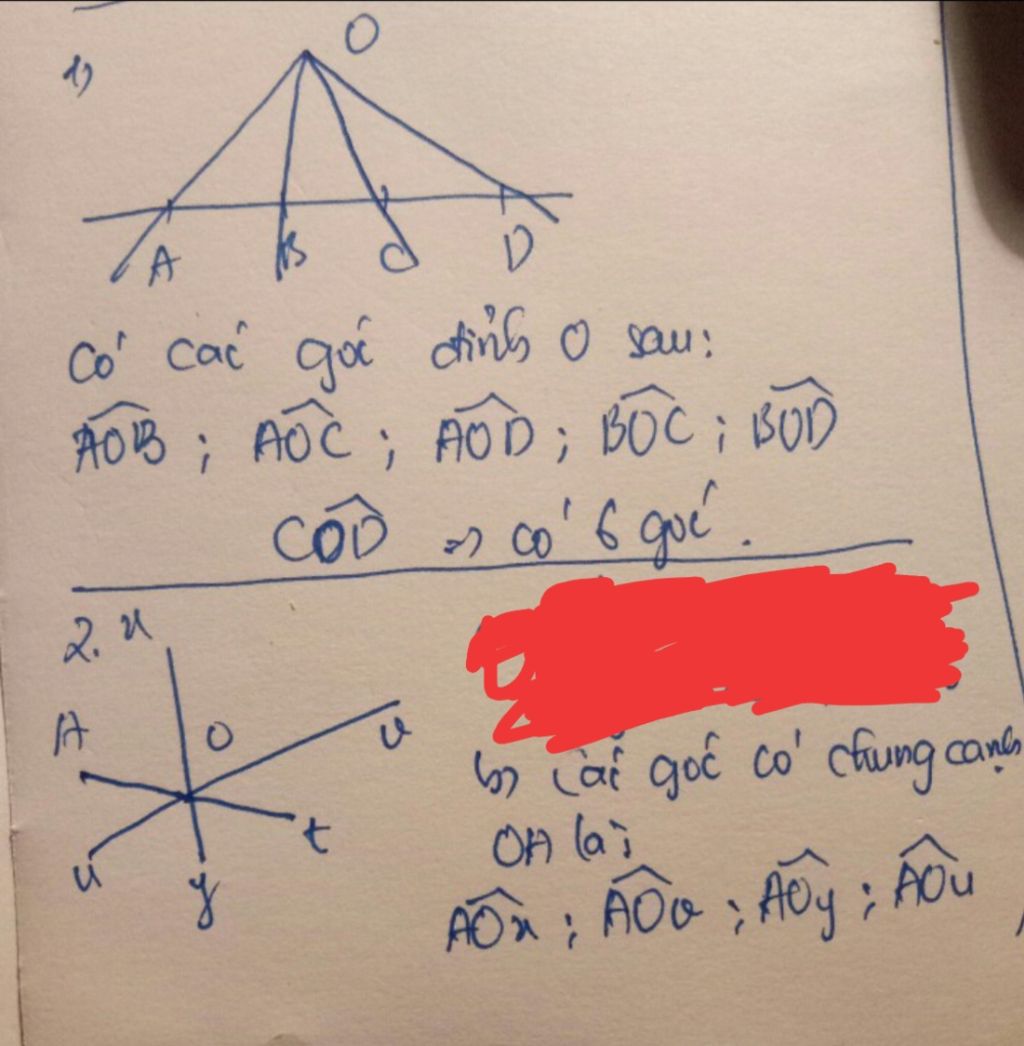 1)
O
A B C D
Có các góc đỉnh O sau:
AOB ; AOC ; AOD ; BOC ; BOD
COD => có 6 góc.
2. x
A O v
u y t
b) Các góc có chung cạnh
OA là:
AOx ; AOv ; AOy ; AOu